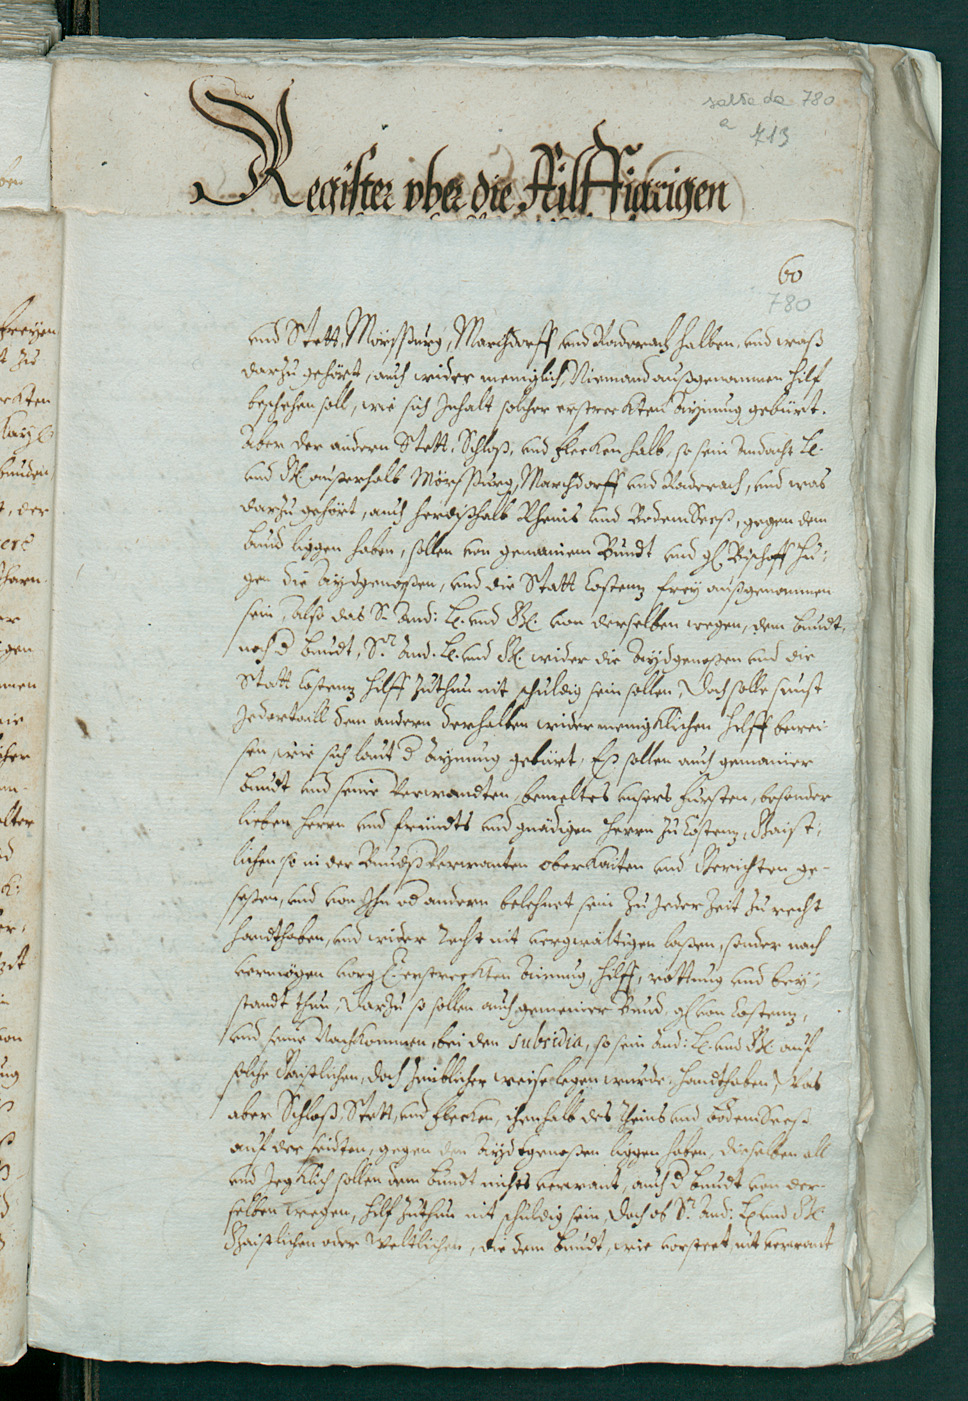 salta da 780
a 713
Register vber die Ailff iärigen
60
780
vnd Stett, Mörsspurg, Marchdorff, vnd Roderach halben, vnd waß
darzu gehört, auch wider meniglich, Niemand außgenommen hilf
beschehen soll, wie sich Inhalt solcher erstreckten Aynung gebürt.
Aber der andern Stett, Schloß, vnd flecken halb, so sein Andacht L.
vnd G. ausserhalb Mörsspurg, Marchdorff vnd Roderach, vnd was
darzu gehört, auch herdißhalb Rheins vnd BodemSees, gegen dem
bund liggen haben, sollen von gemainem Bundt vnd g. Bischoff Hu-
gen die Aydgenoßen, vnd die Statt Costenz frey außgenommen
sein, also das S. And: L. vnd G. von derselben wegen, dem bundt,
noch d bundt, Sr. And. L. vnd G. wider die Aydgenoßen vnd die
Statt Costenz hilff zuthun nit schuldig sein sollen, Doch solle sunst
Jedertaill dem andern derhalben wider menigklichen hilff bewei
sen wie sich laut d Aynung gebürt, Es sollen auch gemainer
bundt vnd seine Verwandten, bemeltes vnsers fursten, besonder
lieben herrn vnd freündts vnd gnädigen herrn zu Costenz, Gaist-
lichen so in der Bundßverwanten oberkaiten vnd Gerichten ge-
seßen, vnd von Ihn od andern belehnet sein zu Jeder Zeit zu recht
handthaben, vnd wider Recht nit vergwältigen laßen, sonder nach
vermögen vorg. erstreckten Ainung, hilff, rettung vnd bey-
standt thun, Darzu so sollen auch gemeiner Bund, g. von Costenz,
vnd seine Nachkommen, bei den subsidia, so sein And: L. vnd G. auf
solche Gaistlichen, doch zimblicher weise legen wurde, handthaben, Was
aber Schloß, Stett, vnd flecken, ihenhalb des Rheins vnd BodemSees
auf der seidten, gegen den Aydtgenoßen liggen haben, dieselben all
vnd Jegklich sollen dem bundt nichts verwant, auch d bundt von der-
selben wegen, hilf zuthun nit schuldig sein, doch ob Sr. And: L. vnd G.
Gaistlichen oder Weltlichen, die dem bundt, wie vorsteet, nit verwant